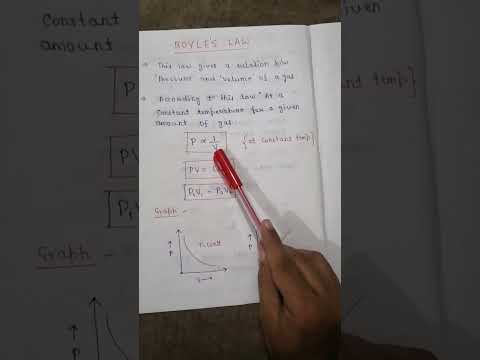 BOYLE'S LAW
→ This law gives a relation b/w
'Pressure' and 'Volume' of a gas
→ According to this law "At a
constant temperature for a given
amount of gas
P ∝ 1/V {at constant temp}
PV =
P₁V₁ = P₂V
Graph -
↑
P
T, const
V →
↑
P
constant
given
amount o
constant temp}
P₁
Graph -
↑
P
↑
P